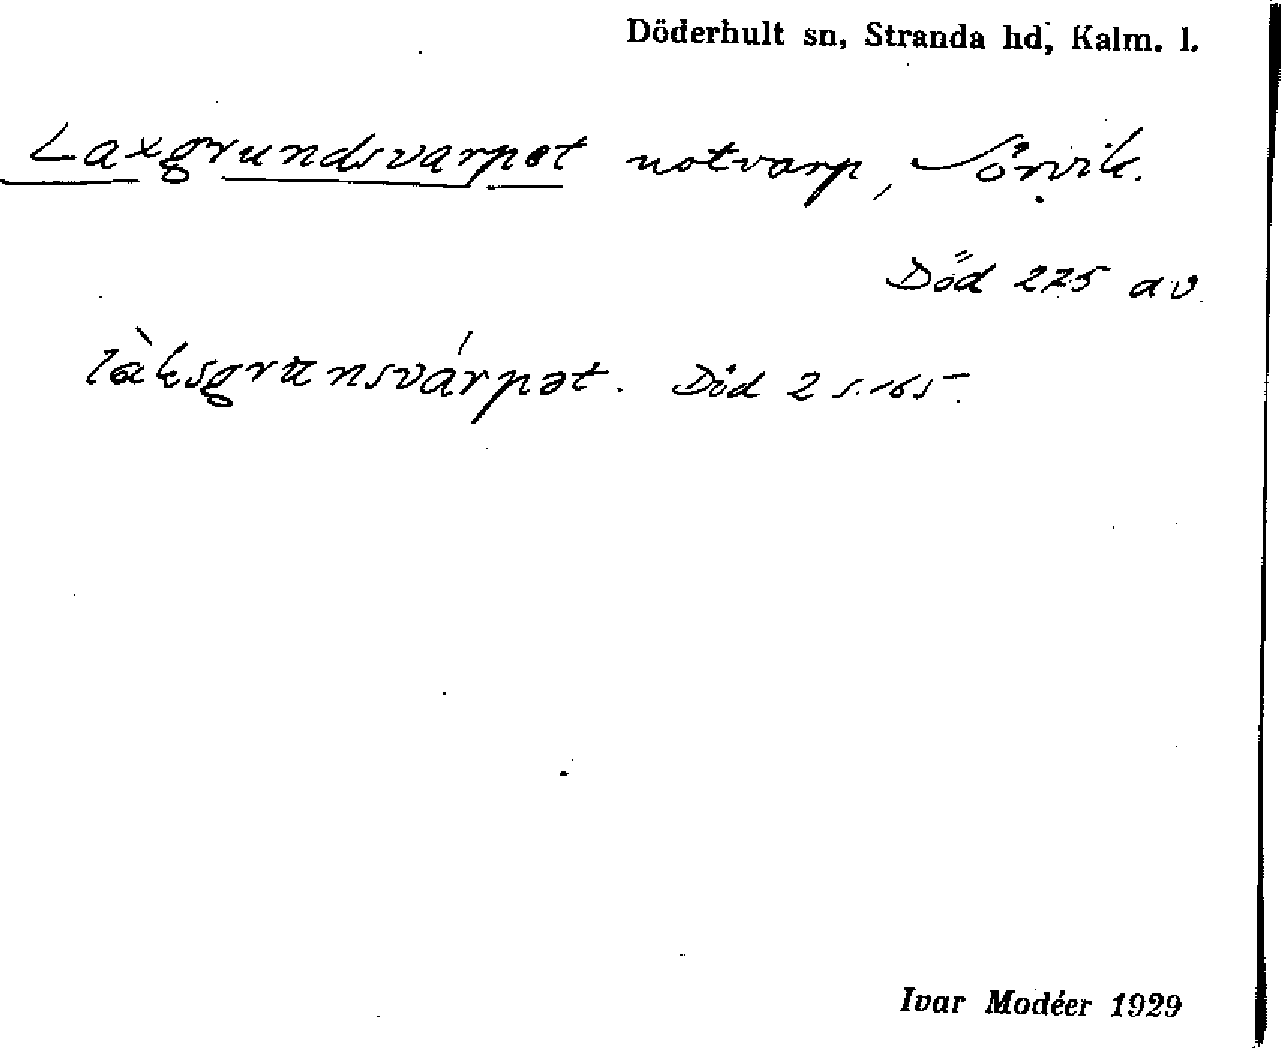 Döderhult sn, Stranda hd, Kalm. l.
Laxgrundsvarpet notvarp, Sörvik.
Död 225 av
làksgrunsvárpət. Död 2 s. 165.
Ivar Modéer 1929